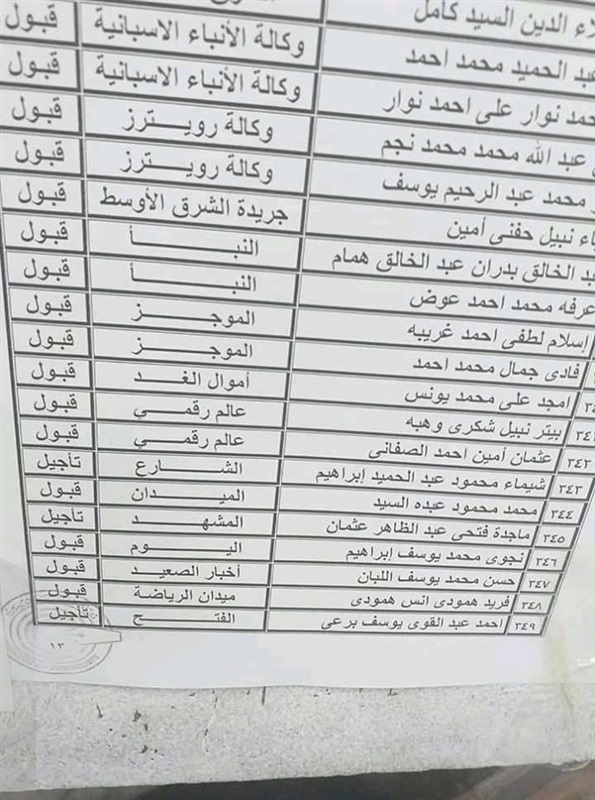 الدين السيد كامل
الحميد محمد احمد وكالة الأنباء الاسبانية قبول
نوار على احمد نوار وكالة الأنباء الاسبانية قبول
عبد الله محمد محمد نجم وكالة رويترز قبول
محمد عبد الرحيم يوسف وكالة رويترز قبول
نبيل حفنى أمين جريدة الشرق الأوسط قبول
الخالق بدران عبد الخالق همام النبأ قبول
عرفه محمد احمد عوض النبأ قبول
إسلام لطفى احمد غريبه الموجز قبول
فادى جمال محمد احمد الموجز قبول
امجد على محمد يونس أموال الغد قبول
بيتر نبيل شكرى وهبه عالم رقمي قبول
٣٤٢ عثمان أمين احمد الصفانى عالم رقمي قبول
٣٤٣ شيماء محمود عبد الحميد إبراهيم الشارع تأجيل
٣٤٤ محمد محمود عبده السيد الميدان قبول
٣٤٥ ماجدة فتحى عبد الظاهر عثمان المشهد تأجيل
٣٤٦ نجوى محمد يوسف إبراهيم اليوم قبول
٣٤٧ حسن محمد يوسف اللبان أخبار الصعيد قبول
٣٤٨ فريد همودى انس همودى ميدان الرياضة قبول
٣٤٩ احمد عبد القوى يوسف برعى الفتح تأجيل
١٣